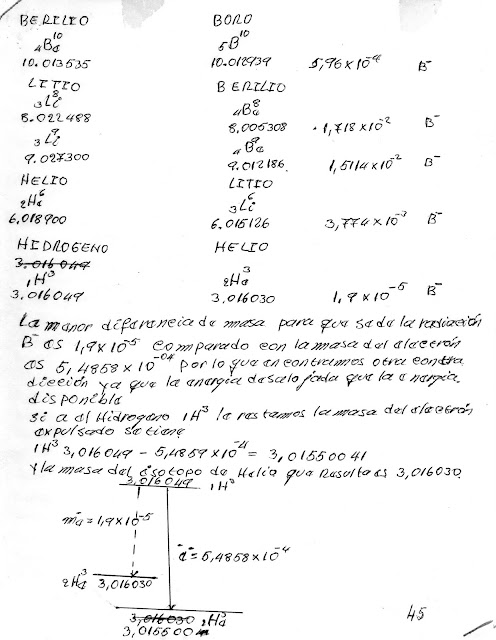 BERILIO BORO
₄Be¹⁰ ₅B¹⁰
10.013535 10.012939 5,96 x 10⁻⁴ B⁻
LITIO BERILIO
₃Li⁸ ₄Be⁸
8.022488 8.005308 1,718 x 10⁻² B⁻
₃Li⁹ ₄Be⁹
9.027300 9.012186 1,5114 x 10⁻² B⁻
HELIO LITIO
₂He⁶ ₃Li⁶
6.018900 6.015126 3,774 x 10⁻³ B⁻
HIDROGENO HELIO
3.016049
₁H³ ₂He³
3.016049 3.016030 1,9 x 10⁻⁵ B⁻
La menor diferencia de masa para que se de la radiación
B⁻ es 1,9x10⁻⁵ comparado con la masa del electrón
es 5,4858x10⁻⁰⁴ por lo que encontramos otra contra
dicción ya que la energia desalojada que la energia
disponible
Si a el Hidrogeno ₁H³ le restamos la masa del electrón
expulsado se tiene
₁H³ 3,016049 - 5,4859x10⁻⁴ = 3,01550041
y la masa del isotopo de Helio que Resulta es 3,016030.
3,016049 ₁H³
me = 1,9x10⁻⁵
e⁻ = 5,4858x10⁻⁴
₂He³ 3,016030
3,016030 ₂He³
3,015500
45